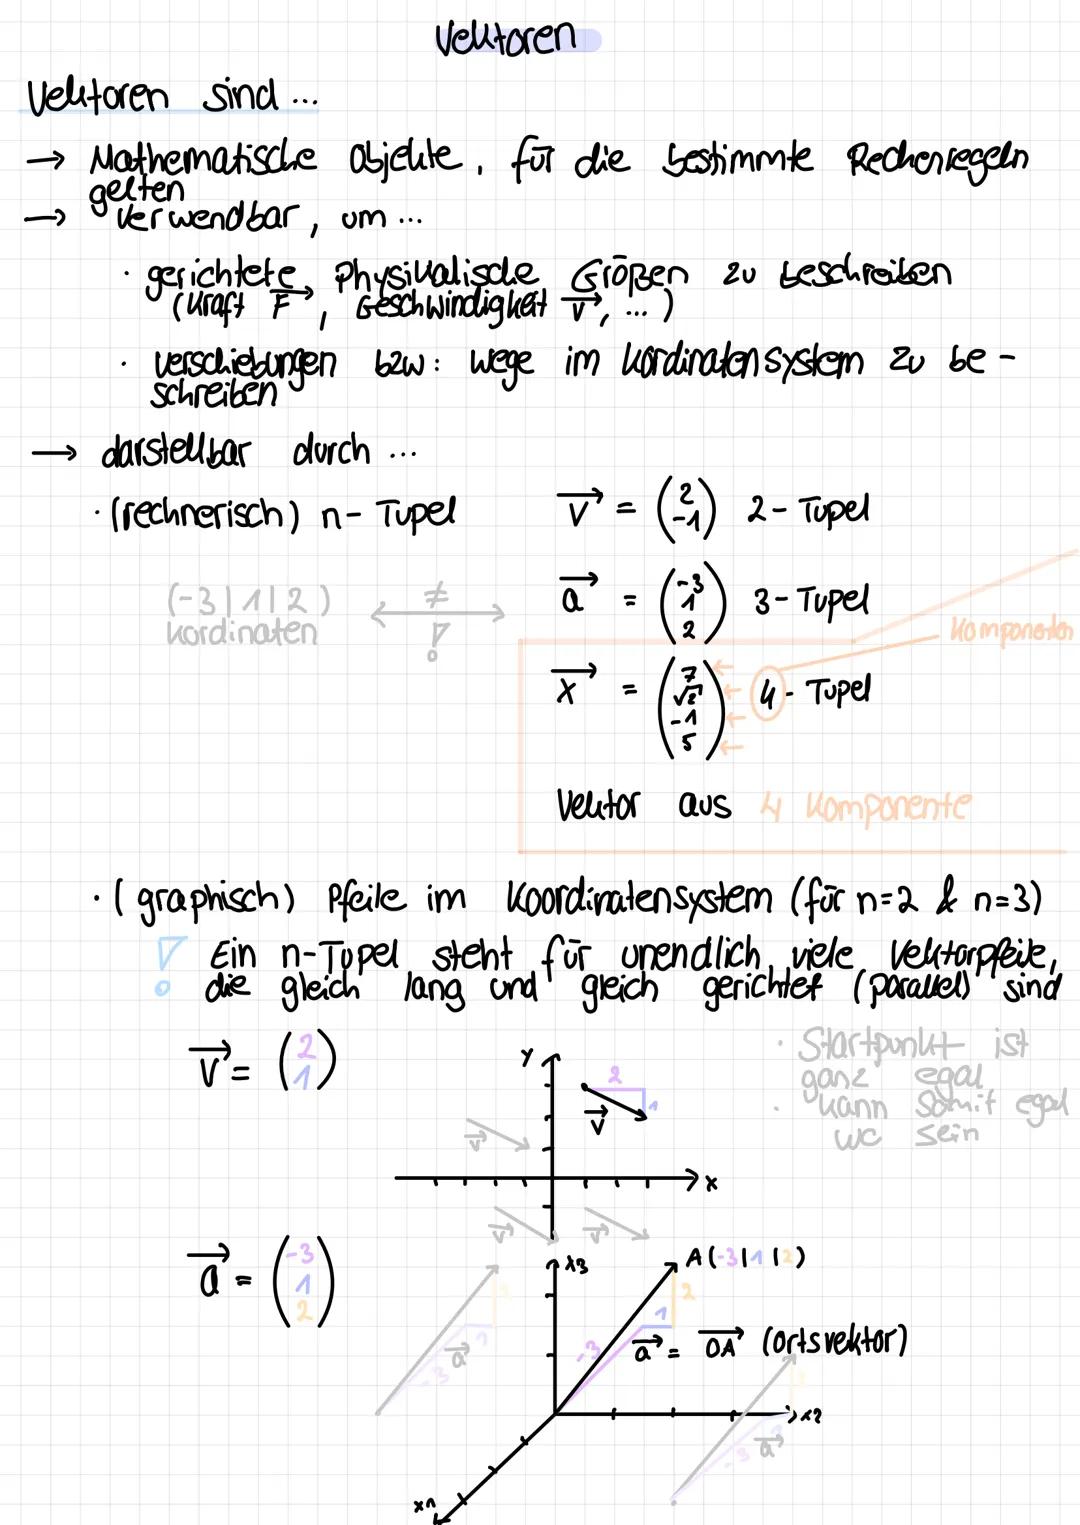 Vektoren
Vektoren sind ...
→ Mathematische Objekte, für die bestimmte Rechenregeln
gelten
→ verwendbar, um ...
· gerichtete physikalische Größen zu beschreiben
(Kraft F→, Geschwindigkeit v→, ...)
· verschiebungen bzw: wege im Kordinatensystem zu be-
schreiben
→ darstellbar durch ...
· (rechnerisch) n- Tupel
v→ = (2 -1) 2- Tupel
(-3|1|2) ≠
kordinaten !
a→ = (-3 1 2) 3- Tupel
Komponenten
x→ = (7 √2 -1 5) 4- Tupel
Vektor aus 4 Komponente
· (graphisch) Pfeile im Koordinatensystem (für n=2 & n=3)
! Ein n-Tupel steht für unendlich viele Vektorpfeile,
die gleich lang und gleich gerichtet (parallel) sind
v→ = (2 1)
y
2
1
v→
v→
x
v→
v→
· Startpunkt ist
ganz egal
· kann somit egal
wo sein
a→ = (-3 1 2)
x3
A(-3|1|2)
2
1
-3
a→ = OA→ (ortsvektor)
2
1
-3
a→
x2
2
-3
a→
x1